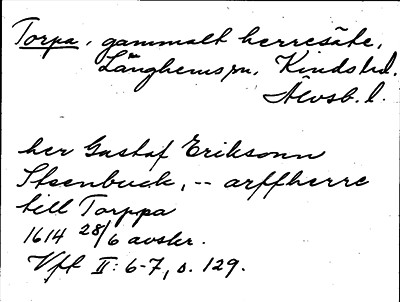 Torpa, gammalt herresäte,
Länghems sn, Kinds hd.
Älvsb. l.
her Gustaf Eriksonn
Stenbuck, -- arffherre
till Torppa
1614 28/6 avskr.
Vft II: 6-7, s. 129.